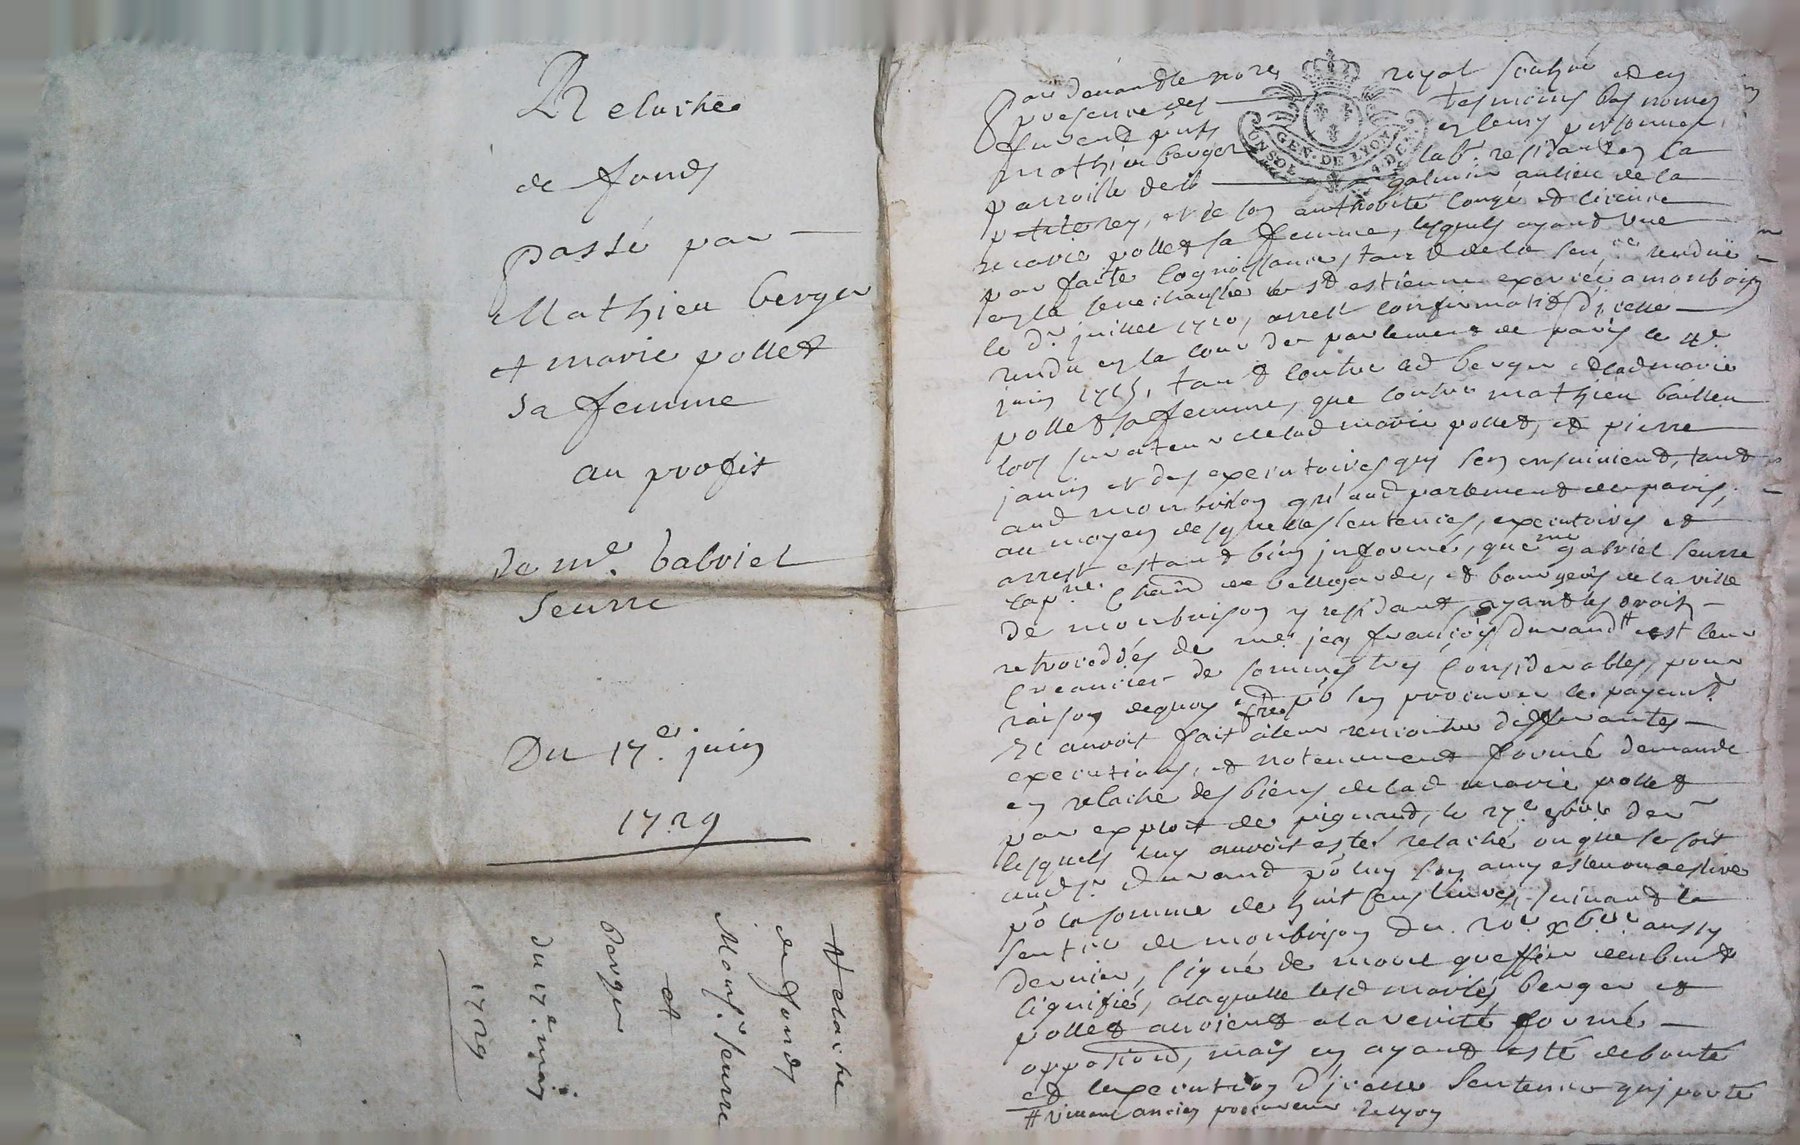 Relache
de fonds
passé par
Mathieu berger
et marie pollet
sa femme
au profit
de me. Gabriel
Seurre
Du 17e. juin
1729
Relache
de fonds
Mons.r Seurre
et
Berger
du 17e. juin
1729
Par devant le no.re royal soubzné et en
presence des tesmoins bas només
furent p.nts en leurs personnes
mathieu berger lab.r residant en la
parroisse de st galmier au lieu de la
et de son authorité congé et licence
marie pollet sa femme, lesquels ayant une
parfaite cognoissance, tant de la sen.ce rendüe
en la senechaussée de st estienne exercée a monbrison
le juillet 1710, arrest confirmatif d'icelle
rendu en la cour de parlement de paris le 4e.
juin 1715, tant contre led berger et lad marie
pollet sa femme, que contre mathieu
lors curateur de lad marie pollet, et pierre
janin et des executoires qui s'en ensuivient, tant
aud monbrison qu'aud parlement de paris,
au moyen desquelles sentences, executoires et
arrest estant bien informés, que me gabriel seurre
de bellegarde, et bourgeois de la ville
de monbrison y residant, ayant les droits
retrocedés de me jean françois durand # est leur
creancier de sommes tres considerables, pour
raison de quoy et po s'en procurer le payem.t
il auroit fait a leur rencontre differantes
executions, et notemment formé demande
en relache des biens de lad marie pollet
par exploit de pignand, le 27e 8bre der
lesquels luy auroit estés relaché ou que se soit
aud sr durand po luy son amy
po la somme de huit cens livres, suivant la
sentce de monbrison du 20e xbre aussy
dernier, signé de
signifié, a laquelle lesd mariés berger et
pollet auroient a la verité formé
opposition, mais en ayant esté debouté
et l'execution d'icelle sentence qui porte
# ancien procureur de lyon
GEN. DE LYON